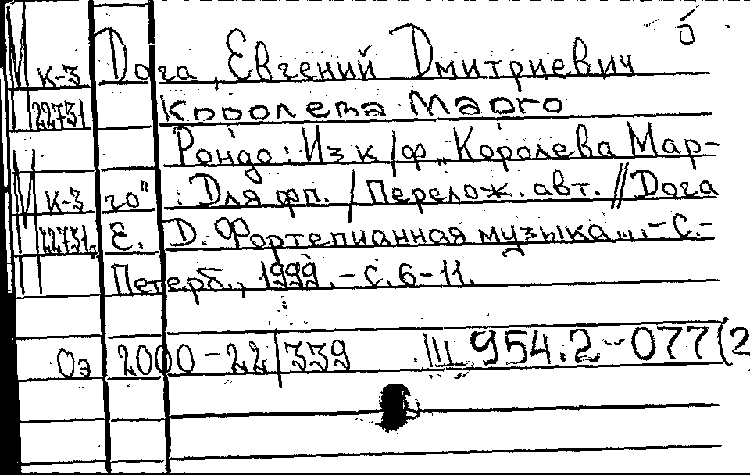 б
М к-3 Дога, Евгений Дмитриевич
22731 Королева Марго
Рондо: Из к/ф „Королева Мар-
М к-3 го" : Для фп. / Перелож. авт. // Дога
22731. Е. Д. Фортепианная музыка... - С.-
Петерб., 1999. - С. 6-11.
Оэ 2000-22/339 III 954.2-077(2